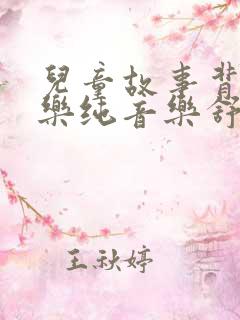 兒童故事背
樂纯音樂舒
王秋婷